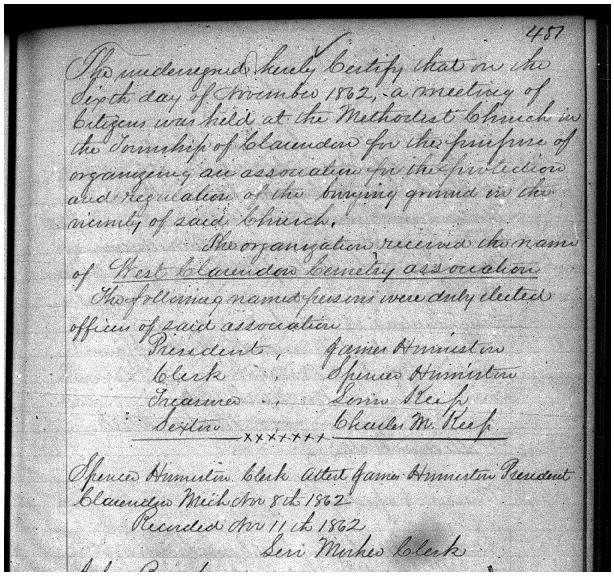 451
The undersigned hereby Certify that on the
Sixth day of November 1862, a meeting of
Citizens was held at the Methodist Church in
the Township of Clarendon for the purpose of
organizing an association for the protection
and regulation of the burying ground in the
vicinity of said Church.
The organization received the name
of West Clarendon Cemetry association
The following named persons were duly elected
officers of said association
President, James Humiston
Clerk Spencer Humiston
Treasurer Keep
Sexton Charles M. Keep
xxxxxxx
Spencer Humiston Clerk Attest James Humiston President
Clarendon Mich Nov 8th 1862
Recorded Nov 11th 1862
Clerk